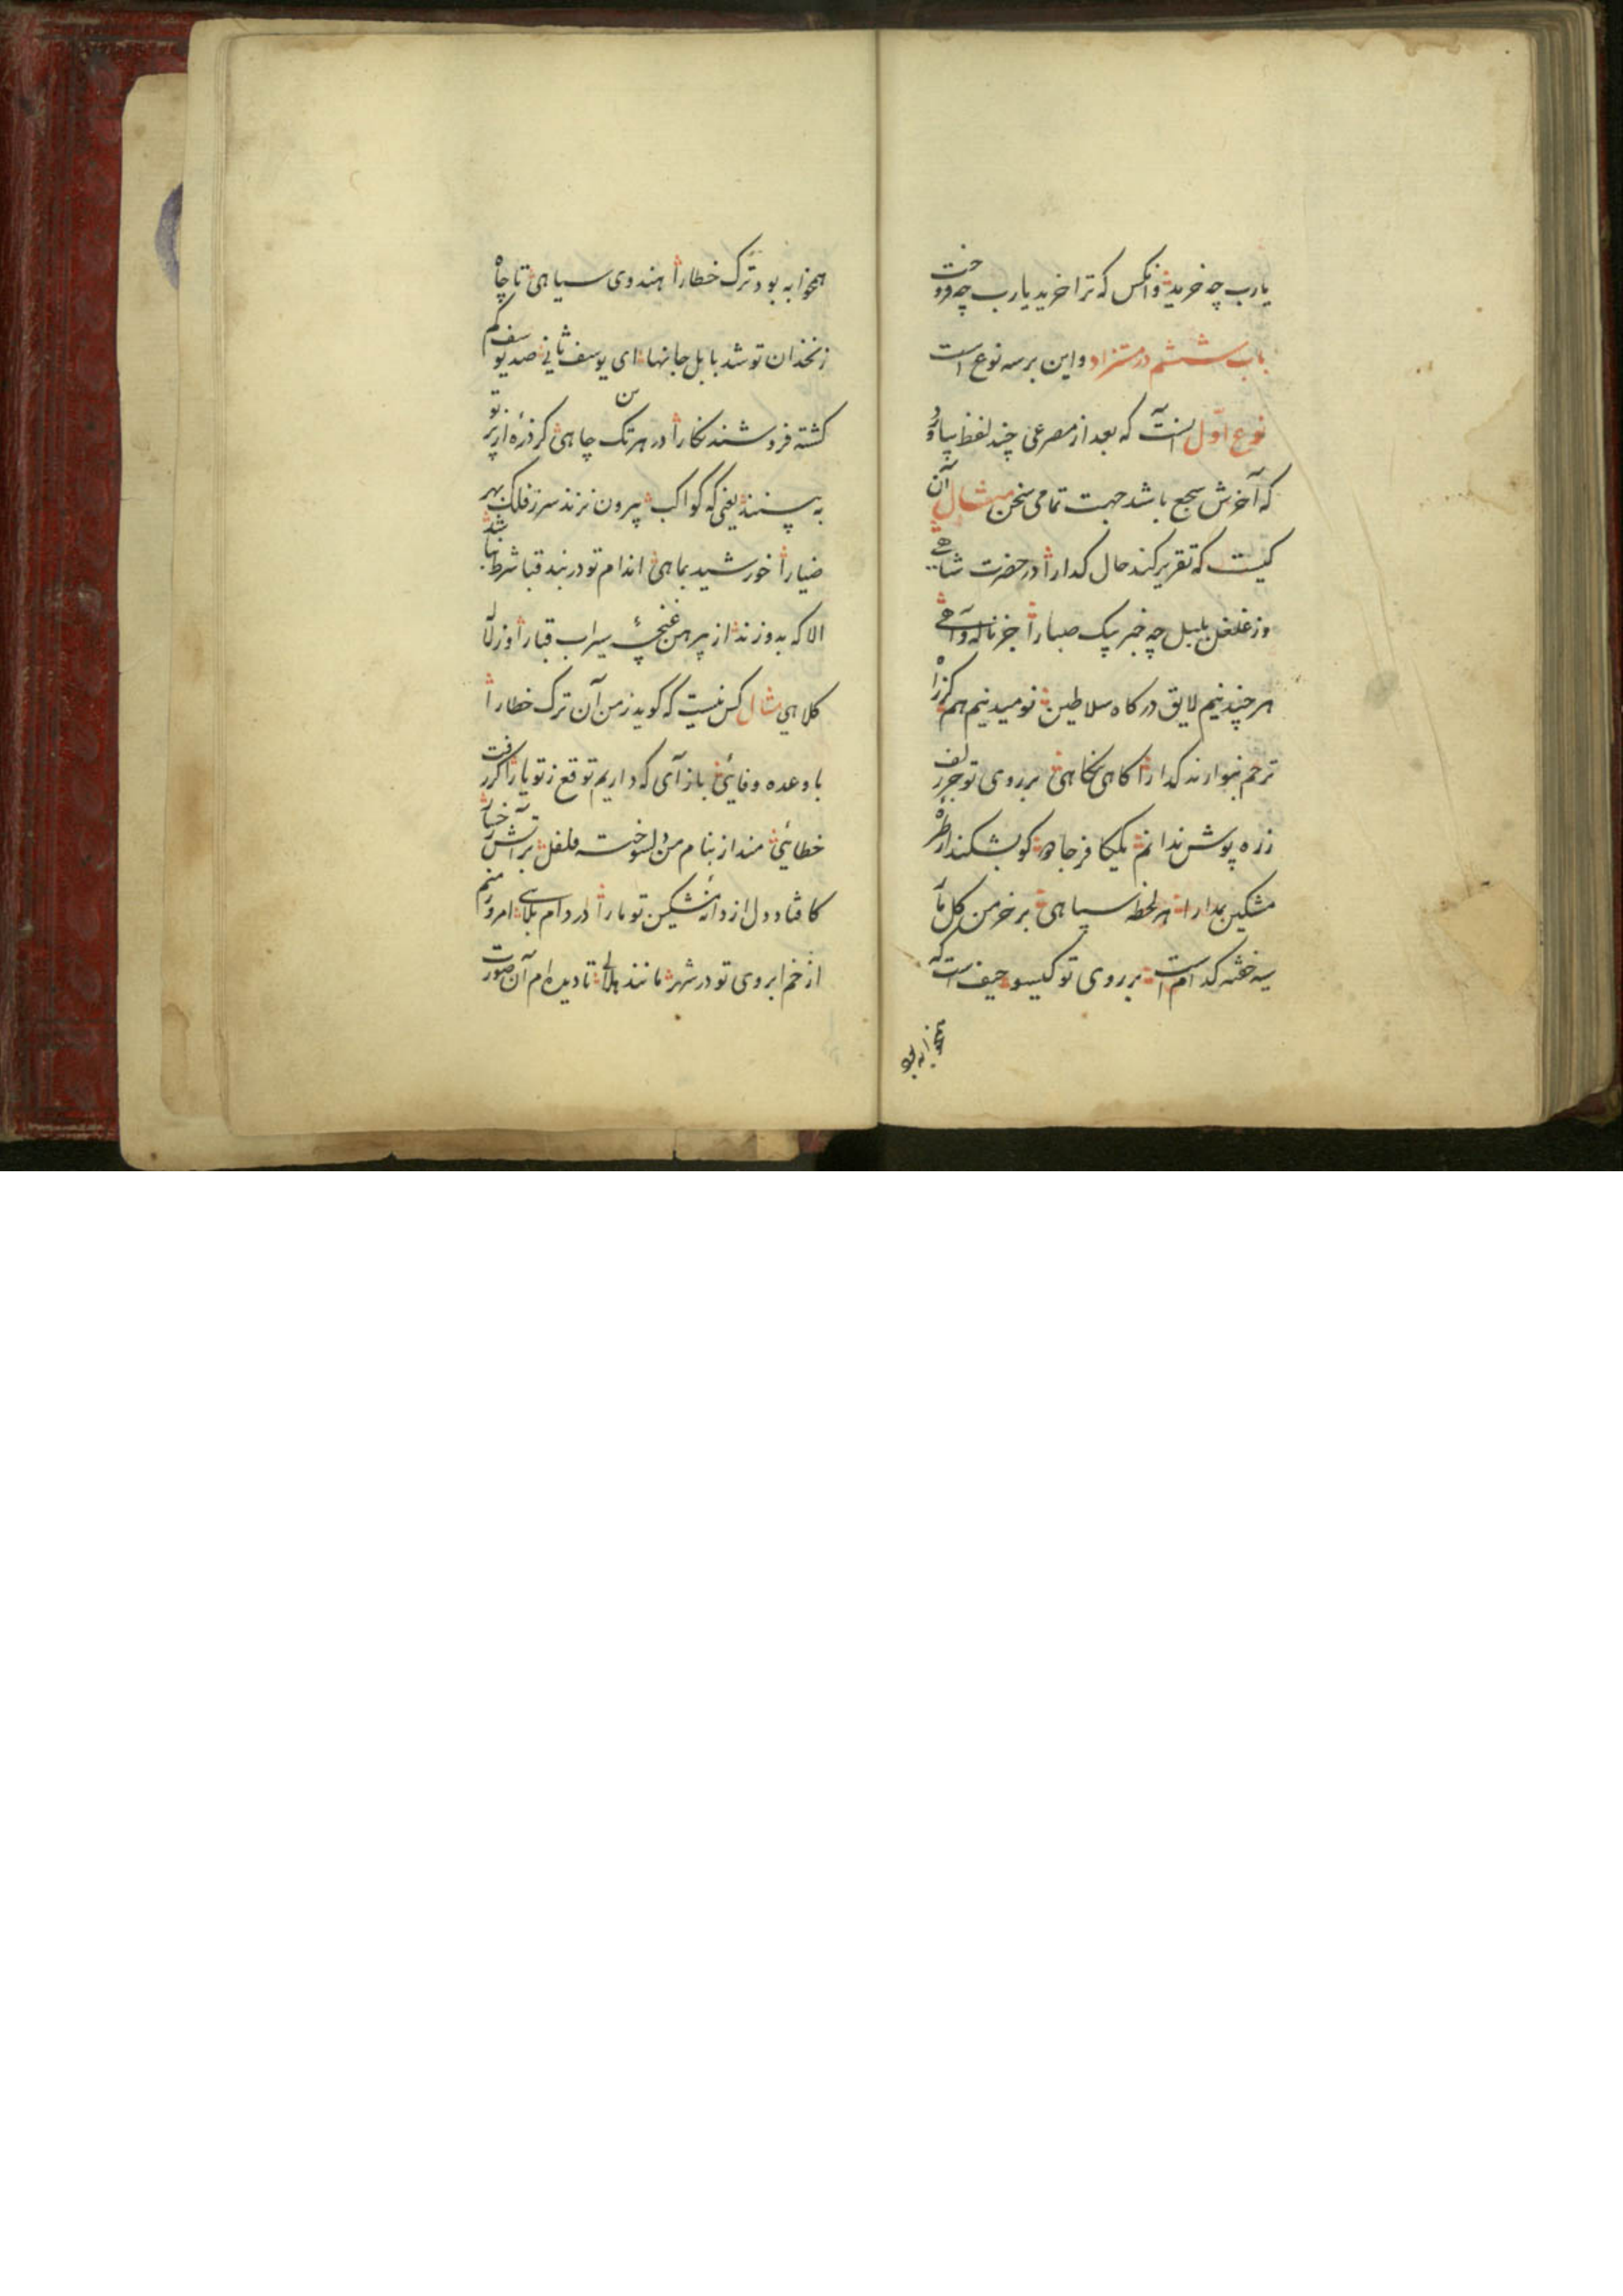 یارب چه خرید و آنکس که ترا خرید یارب چه فروخت
باب ششم در مستزاد و این بر سه نوع است
نوع اول آنست که بعد از مصرعی چند لفظ بیاورد
که آخرش سجع باشد جهت تمامی سخن مثال آن
کیست که تقریر کند حال کدا را در حضرت شاهی
وز غلغل بلبل چه خبر پیک صبا را جز ناله و آهی
هر چند نیم لایق درکاه سلاطین نومید نیم هم کز راه
ترحم بنوازند کدا را کاهی نکاهی بر روی تو جز زلف
زره پوش ندانم یک کافر جادو کو بشکند از طره
مشکین بمدارا هر لحظه سپاهی بر خرمن کل
سیه خفته کدام است بر روی تو کیسو حیف است که
همخوابه بود
همخوابه بود ترک خطا را هندوی سیاهی تا چاه
زنخدان تو شد بابل جانها ای یوسف ثانی صد یوسف کم
کشته فروشند نکارا در هر تک چاهی کر ذره از پرتو
به بینند یعنی که کواکب بیرون نزند سر ز فلک بهر
ضیا را خورشید بماهی اندام تو در بند قبا شرط نباشد
الا که بدوزند از پیرهن غنچهٔ سیراب قبا را وز لاله
کلاهی مثال کس نیست که کوید ز من آن ترک خطا را
با وعده وفائی باز آی که داریم توقع ز تو یارا کر رفت
خطائی مندازبنام من دلسوخته فلفل بر آتش رخسار
کافتاد دل از دانهٔ مشکین تو مارا در دام بلای امروز منم
از خم ابروی تو در شهر مانند هلالی تا دیده‌ام آن صورت